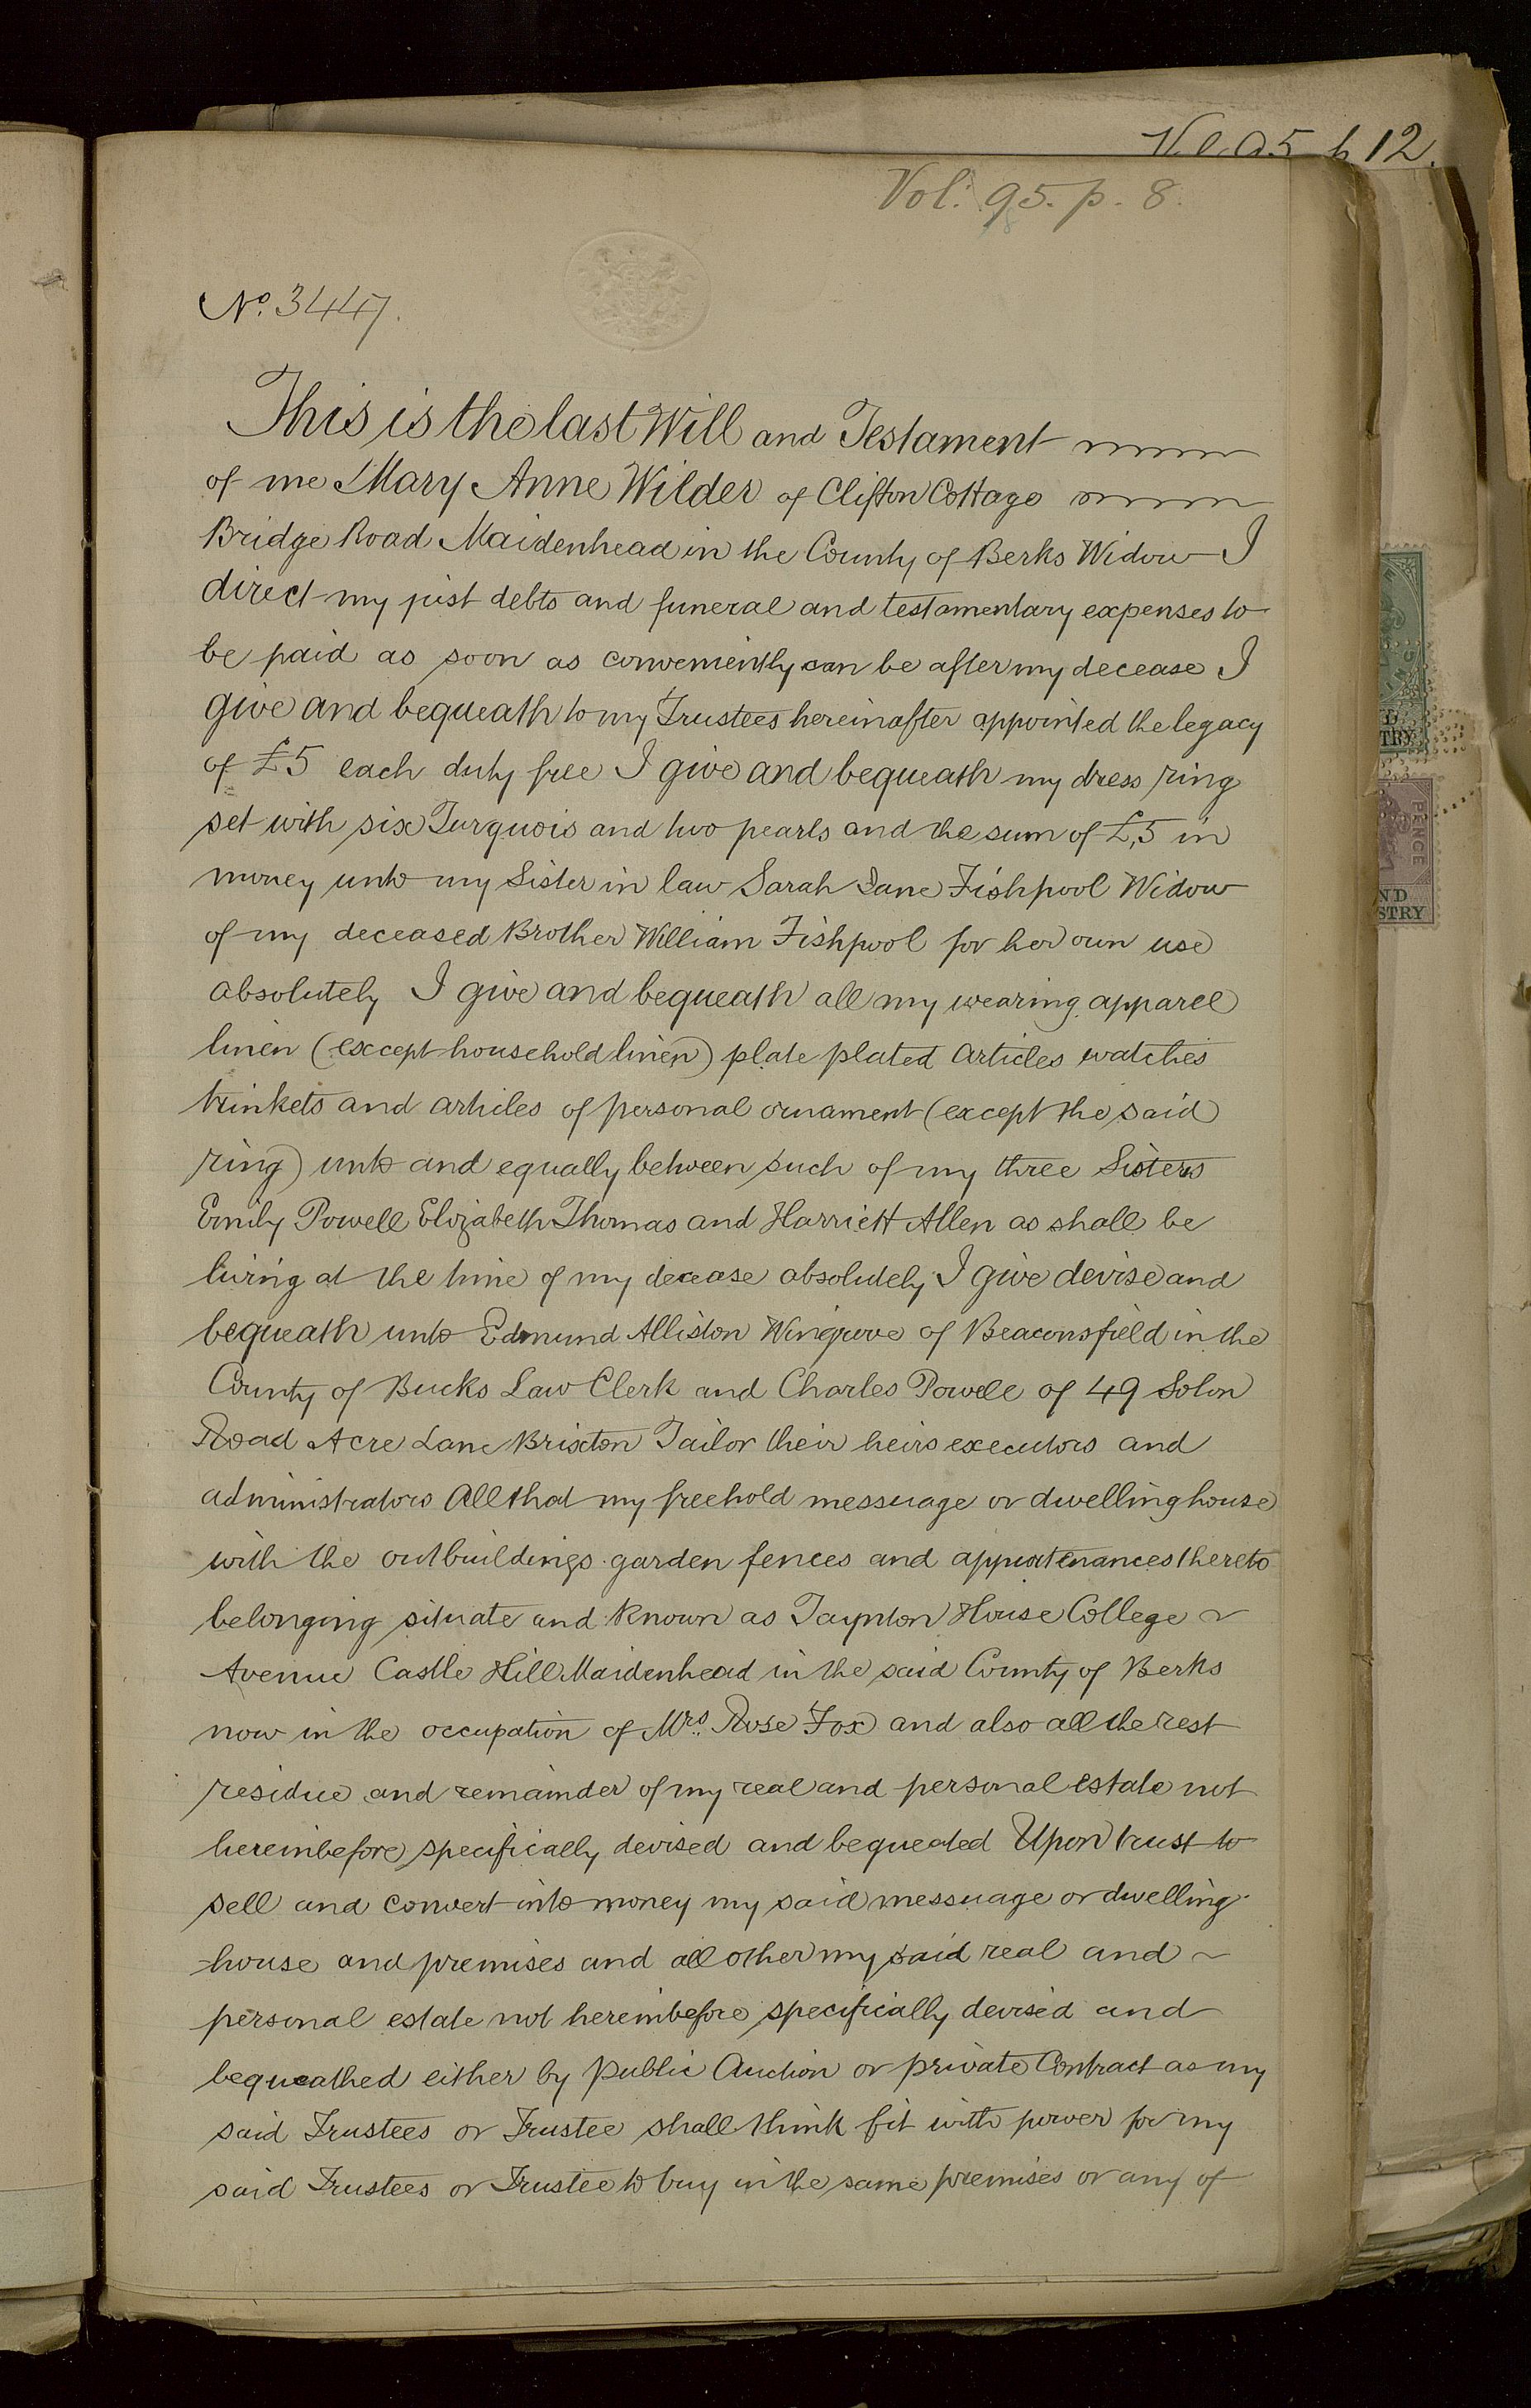 Vol. 95. p. 8.
No. 3447.
This is the last Will and Testament
of me Mary Anne Wilder of Clifton Cottage
Bridge Road Maidenhead in the County of Berks Widow I
direct my just debts and funeral and testamentary expenses to
be paid as soon as conveniently can be after my decease I
give and bequeath to my Trustees hereinafter appointed the legacy
of £5 each duty free I give and bequeath my dress ring
set with six Turquois and two pearls and the sum of £5 in
money unto my Sister in law Sarah Jane Fishpool Widow
of my deceased Brother William Fishpool for her own use
absolutely I give and bequeath all my wearing apparel
linen (except household linen) plate plated articles watches
trinkets and articles of personal ornament (except the said
ring) unto and equally between such of my three Sisters
Emily Powell Elizabeth Thomas and Harriett Allen as shall be
living at the time of my decease absolutely I give devise and
bequeath unto Edmund Alliston Wingrove of Beaconsfield in the
County of Bucks Law Clerk and Charles Powell of 49 Solon
Road Acre Lane Brixton Tailor their heirs executors and
administrators All that my freehold messuage or dwellinghouse
with the outbuildings garden fences and appurtenances thereto
belonging situate and known as Taynton House College
Avenue Castle Hill Maidenhead in the said County of Berks
now in the occupation of Mrs. Rose Fox and also all the rest
residue and remainder of my real and personal estate not
hereinbefore specifically devised and bequeated Upon trust to
sell and convert into money my said messuage or dwelling
house and premises and all other my said real and
personal estate not hereinbefore specifically devised and
bequeathed either by Public Auction or private Contract as my
said Trustees or Trustee shall think fit with power for my
said Trustees or Trustee to buy in the same premises or any of
PENCE
STRY